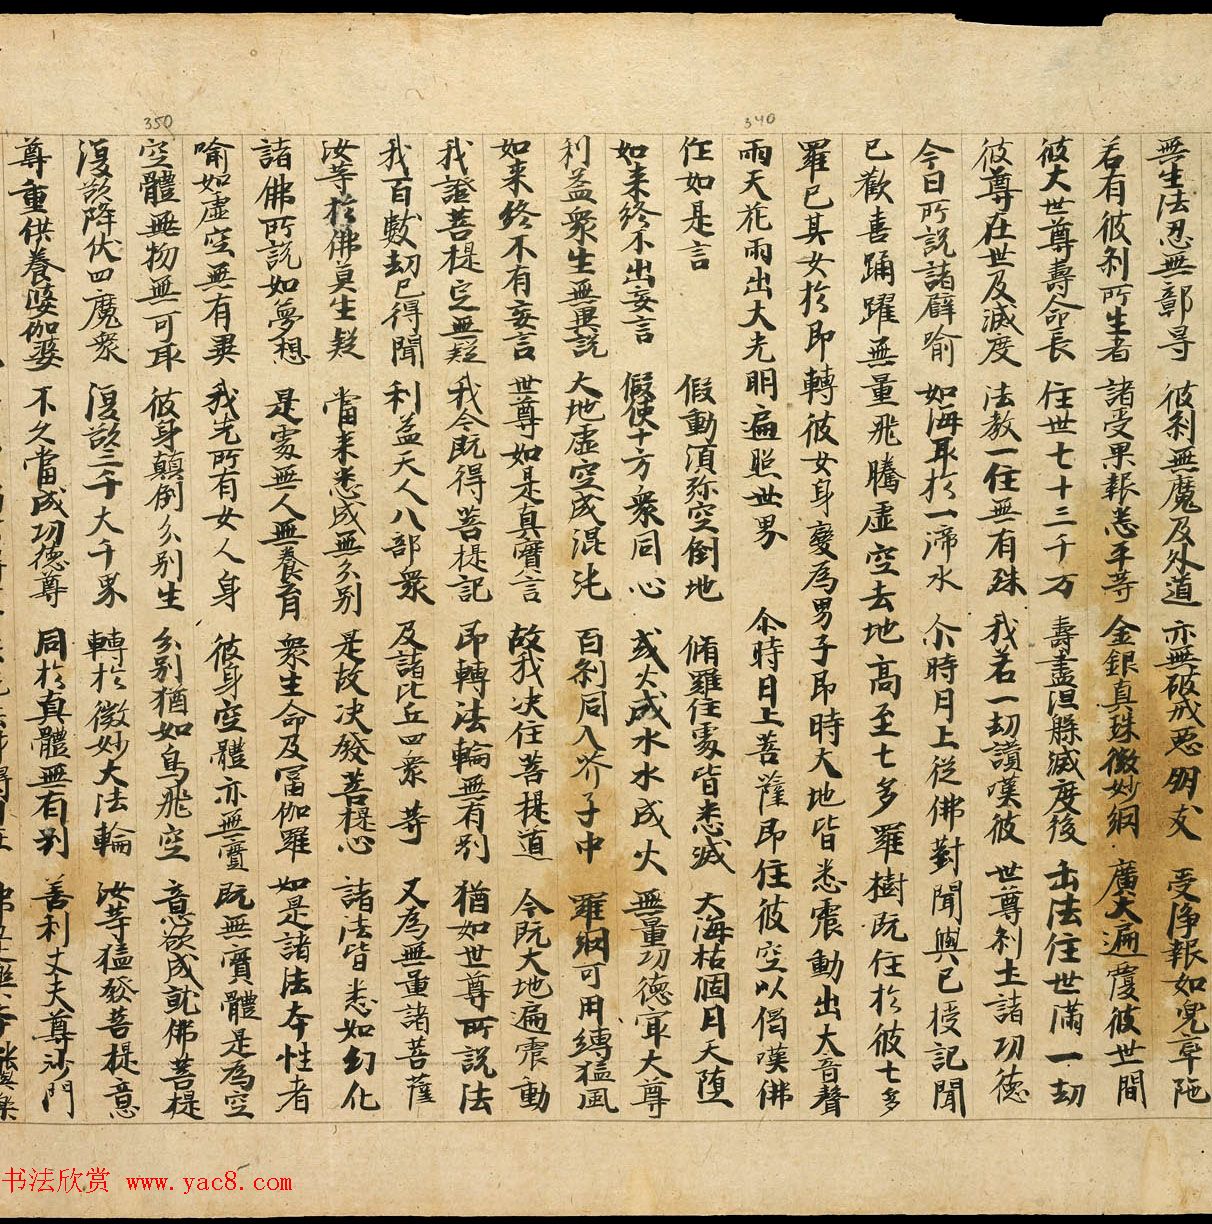 340
350
無生法忍無鄣㝵 彼剎無魔及外道 亦無破戒惡朋友 受淨報如兜率陁
若有彼剎所生者 諸受果報悉平等 金銀真珠微妙網 廣大遍覆彼世間
彼大世尊壽命長 住世七十三千万 壽盡涅槃滅度後 出法住世滿一劫
彼尊在世及滅度 法教一住無有殊 我若一劫讚嘆彼 世尊剎土諸功德
今日所說諸譬喻 如海取於一渧水 尒時月上從佛對聞與已授記聞
已歡喜踊躍無量飛騰虛空去地高至七多羅樹既住於彼七多
羅已其女於即轉彼女身變為男子即時大地皆悉震動出大音聲
雨天花雨出大光明遍照世界 尒時月上菩薩即住彼空以偈嘆佛
作如是言 假動須弥空倒地 脩羅住處皆悉滅 大海枯涸月天墮
如来終不出妄言 假使十方衆同心 或火成水水成火 無量功德冣大尊
利益衆生無異說 大地虛空成混沌 百剎同入芥子中 羅網可用縛猛風
如来終不有妄言 世尊如是真實言 故我决住菩提道 今既大地遍震動
我證菩提定無疑 我今既得菩提記 即轉法輪無有别 猶如世尊所說法
我百數劫已得聞 利益天人八部衆 及諸比丘四衆等 又為無量諸菩薩
汝等於佛莫生疑 當来悉成無分别 是故决發菩提心 諸法皆悉如幻化
諸佛所說如夢想 是處無人無養育 衆生命及富伽羅 如是諸法本性者
喻如虛空無有異 我先所有女人身 彼身空體亦無實 既無實體是為空
空體無物無可取 彼身顛倒分别生 分别猶如鳥飛空 意欲成就佛菩提
復欲降伏四魔衆 復欲三千大千界 轉於微妙大法輪 汝等猛發菩提意
尊重供養婆伽婆 不久當成功德尊 同於真體無有别 善利丈夫尊沙門
书法欣赏 www.yac8.com